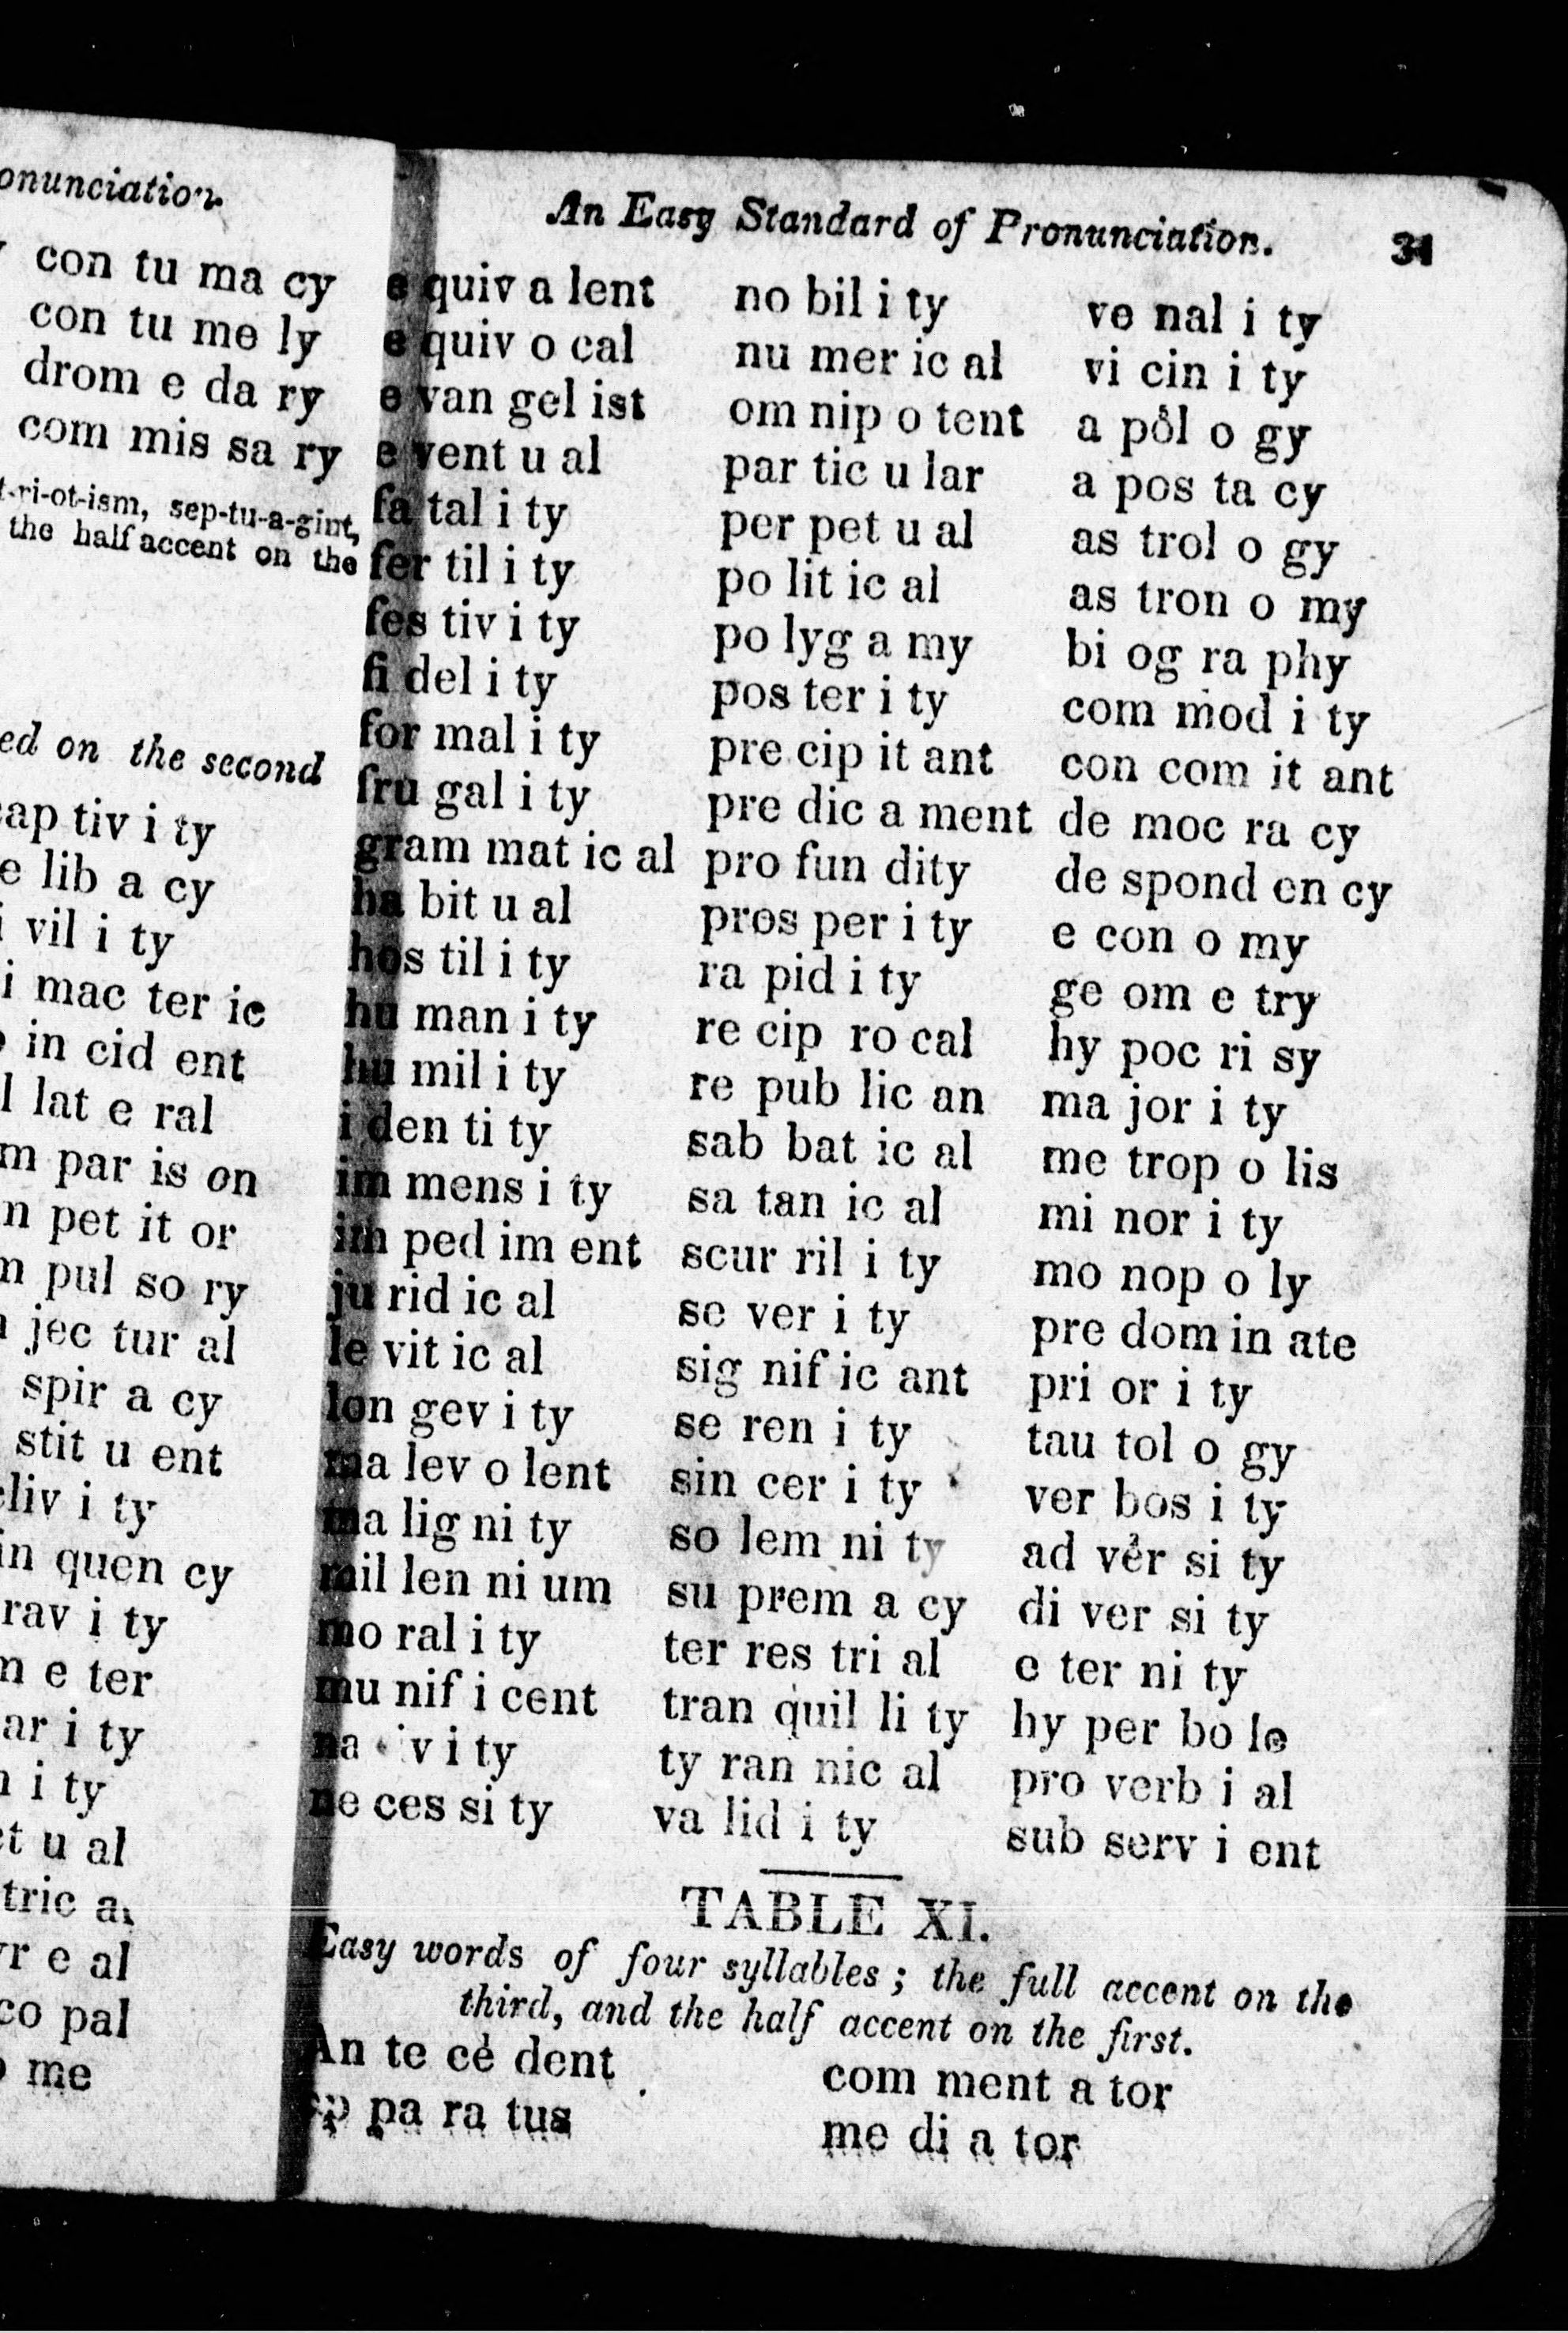 onunciation
con tu ma cy
con tu me ly
drom e da ry
com mis sa ry
t-ri-ot-ism, sep-tu-a-gint,
the half accent on the
ed on the second
ap tiv i ty
e lib a cy
vil i ty
i mac ter ic
in cid ent
l lat e ral
m par is on
n pet it or
n pul so ry
jec tur al
spir a cy
stit u ent
liv i ty
in quen cy
rav i ty
n e ter
ar i ty
i ty
t u al
tric a
r e al
co pal
me
An Easy Standard of Pronunciation. 31
e quiv a lent
e quiv o cal
e van gel ist
e vent u al
fa tal i ty
fer til i ty
fes tiv i ty
fi del i ty
for mal i ty
fru gal i ty
gram mat ic al
ha bit u al
hos til i ty
hu man i ty
hu mil i ty
i den ti ty
im mens i ty
im ped im ent
ju rid ic al
le vit ic al
lon gev i ty
ma lev o lent
ma lig ni ty
mil len ni um
mo ral i ty
mu nif i cent
na v i ty
ne ces si ty
no bil i ty
nu mer ic al
om nip o tent
par tic u lar
per pet u al
po lit ic al
po lyg a my
pos ter i ty
pre cip it ant
pre dic a ment
pro fun dity
pros per i ty
ra pid i ty
re cip ro cal
re pub lic an
sab bat ic al
sa tan ic al
scur ril i ty
se ver i ty
sig nif ic ant
se ren i ty
sin cer i ty
so lem ni ty
su prem a cy
ter res tri al
tran quil li ty
ty ran nic al
va lid i ty
ve nal i ty
vi cin i ty
a pôl o gy
a pos ta cy
as trol o gy
as tron o my
bi og ra phy
com mod i ty
con com it ant
de moc ra cy
de spond en cy
e con o my
ge om e try
hy poc ri sy
ma jor i ty
me trop o lis
mi nor i ty
mo nop o ly
pre dom in ate
pri or i ty
tau tol o gy
ver bos i ty
ad vėr si ty
di ver si ty
e ter ni ty
hy per bo le
pro verb i al
sub serv i ent
TABLE XI.
Easy words of four syllables; the full accent on the
third, and the half accent on the first.
An te cė dent
ap pa ra tus
com ment a tor
me di a tor